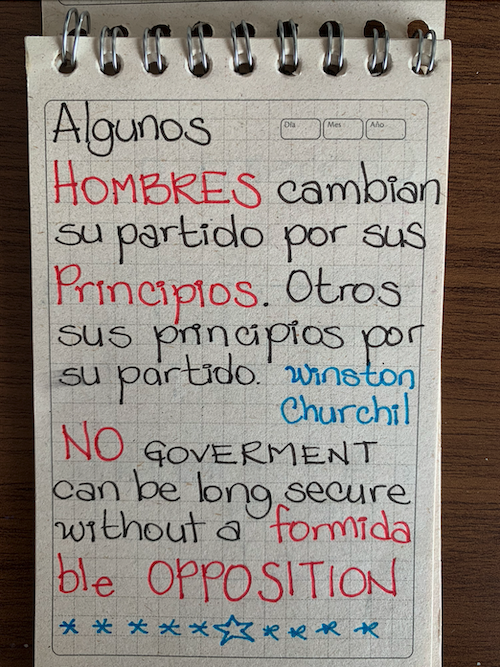 Algunos
Día Mes Año
HOMBRES cambian
su partido por sus
Principios. Otros
sus principios por
su partido. Winston
Churchil
NO GOVERMENT
can be long secure
without a formida
ble OPPOSITION